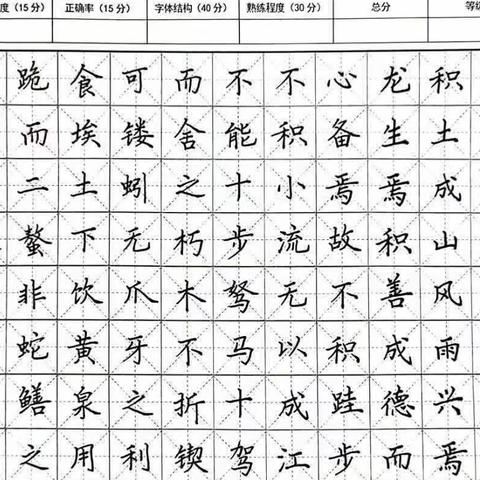 度（15分）
正确率（15分）
字体结构（40分）
熟练程度（30分）
总分
等级
积土成山风雨兴焉
龙生焉积善成德而
心备焉故不积跬步
不积小流无以成江
不能十步驽马十驾
而舍之朽木不折锲
可镂蚓无爪牙之利
食埃土下饮黄泉用
跪而二螯非蛇鳝之